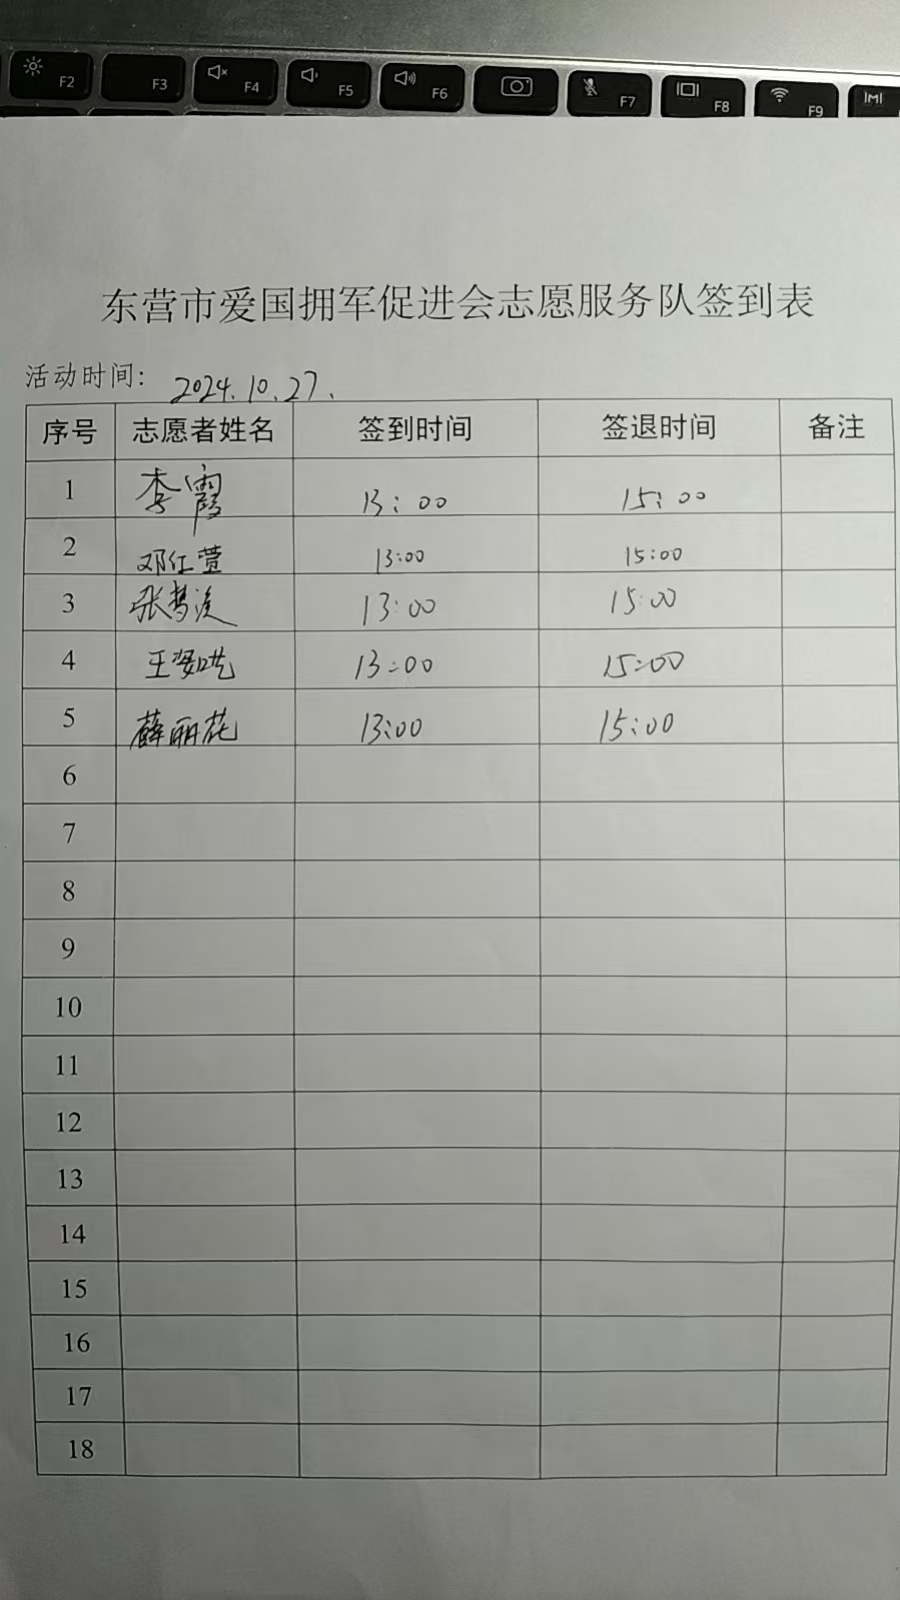 F2 F3 F4 F5 F6 F7 F8 F9
东营市爱国拥军促进会志愿服务队签到表
活动时间: 2024.10.27.
序号 志愿者姓名 签到时间 签退时间 备注
1 李霞 13:00 15:00
2 邓红萱 13:00 15:00
3 张梦溪 13:00 15:00
4 王 13:00 15:00
5 薛丽花 13:00 15:00
6
7
8
9
10
11
12
13
14
15
16
17
18